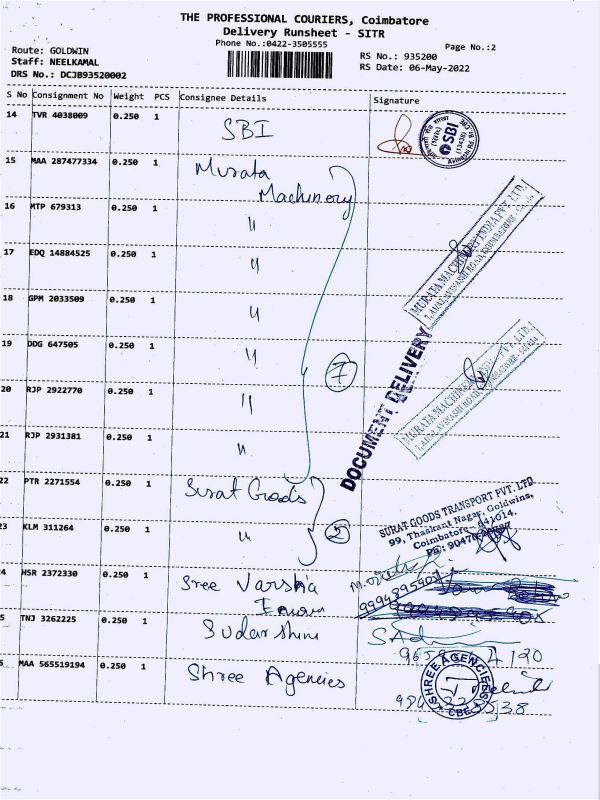 THE PROFESSIONAL COURIERS, Coimbatore
Delivery Runsheet - SITR
Phone No.:0422-3505555
Page No.:2
Route: GOLDWIN
Staff: NEELKAMAL
DRS No.: DCJB93520002
RS No.: 935200
RS Date: 06-May-2022
S No Consignment No Weight PCS Consignee Details Signature
14 TVR 4038009 0.250 1 SBI
SBI
15 MAA 287477334 0.250 1 Murata
Machinery
16 MTP 679313 0.250 1 "
17 EDQ 14884525 0.250 1 "
18 GPM 2033509 0.250 1 "
19 DDG 647505 0.250 1 "
7
20 RJP 2922770 0.250 1 "
21 RJP 2931381 0.250 1 "
MURATA MACHINERY INDIA PVT. LTD.
DOCUMENT DELIVERY
MURATA MACHINERY INDIA PVT. LTD.
22 PTR 2271554 0.250 1 Surat Goods
23 KLM 311264 0.250 1 "
2
SURAT GOODS TRANSPORT PVT. LTD
99, Thaskant Nagar, Goldwins,
Coimbatore - 641014.
24 HSR 2372330 0.250 1 Sree Varsha
9994395901
5 TNJ 3262225 0.250 1 Sudarshini
4190
MAA 565519194 0.250 1 Shree Agencies
SHREE AGENCIES
CBE